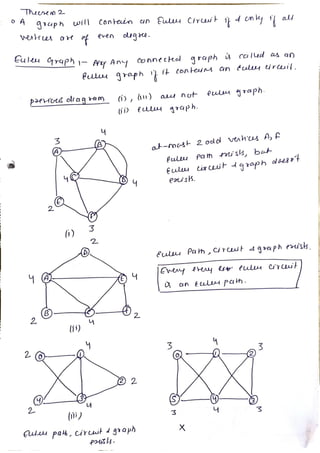 Theorem 2
A graph will contain an Euler Circuit if & only if all
vertices are of even degree.
Euler Graph :- Any Any connected graph is called as an
Euler graph if it contains an Euler circuit.
previous diagram (i), (iii) are not Euler graph.
(ii) Euler graph.
at-most 2 odd vertices A, F
Euler Path exists, but
Euler circuit & graph doesn't
exists.
3
4
A
B
4
C
D
4
2
E
3
(i)
2
D
4
A
E
4
B
C
F
2
4
2
(ii)
Euler Path, Circuit & graph exists.
Every Euler circuit
is an Euler path.
4
2
0
1
2
2
4
3
2
4
(iii)
Euler path, circuit & graph
exists.
3
4
3
0
1
2
5
4
3
3
4
3
X